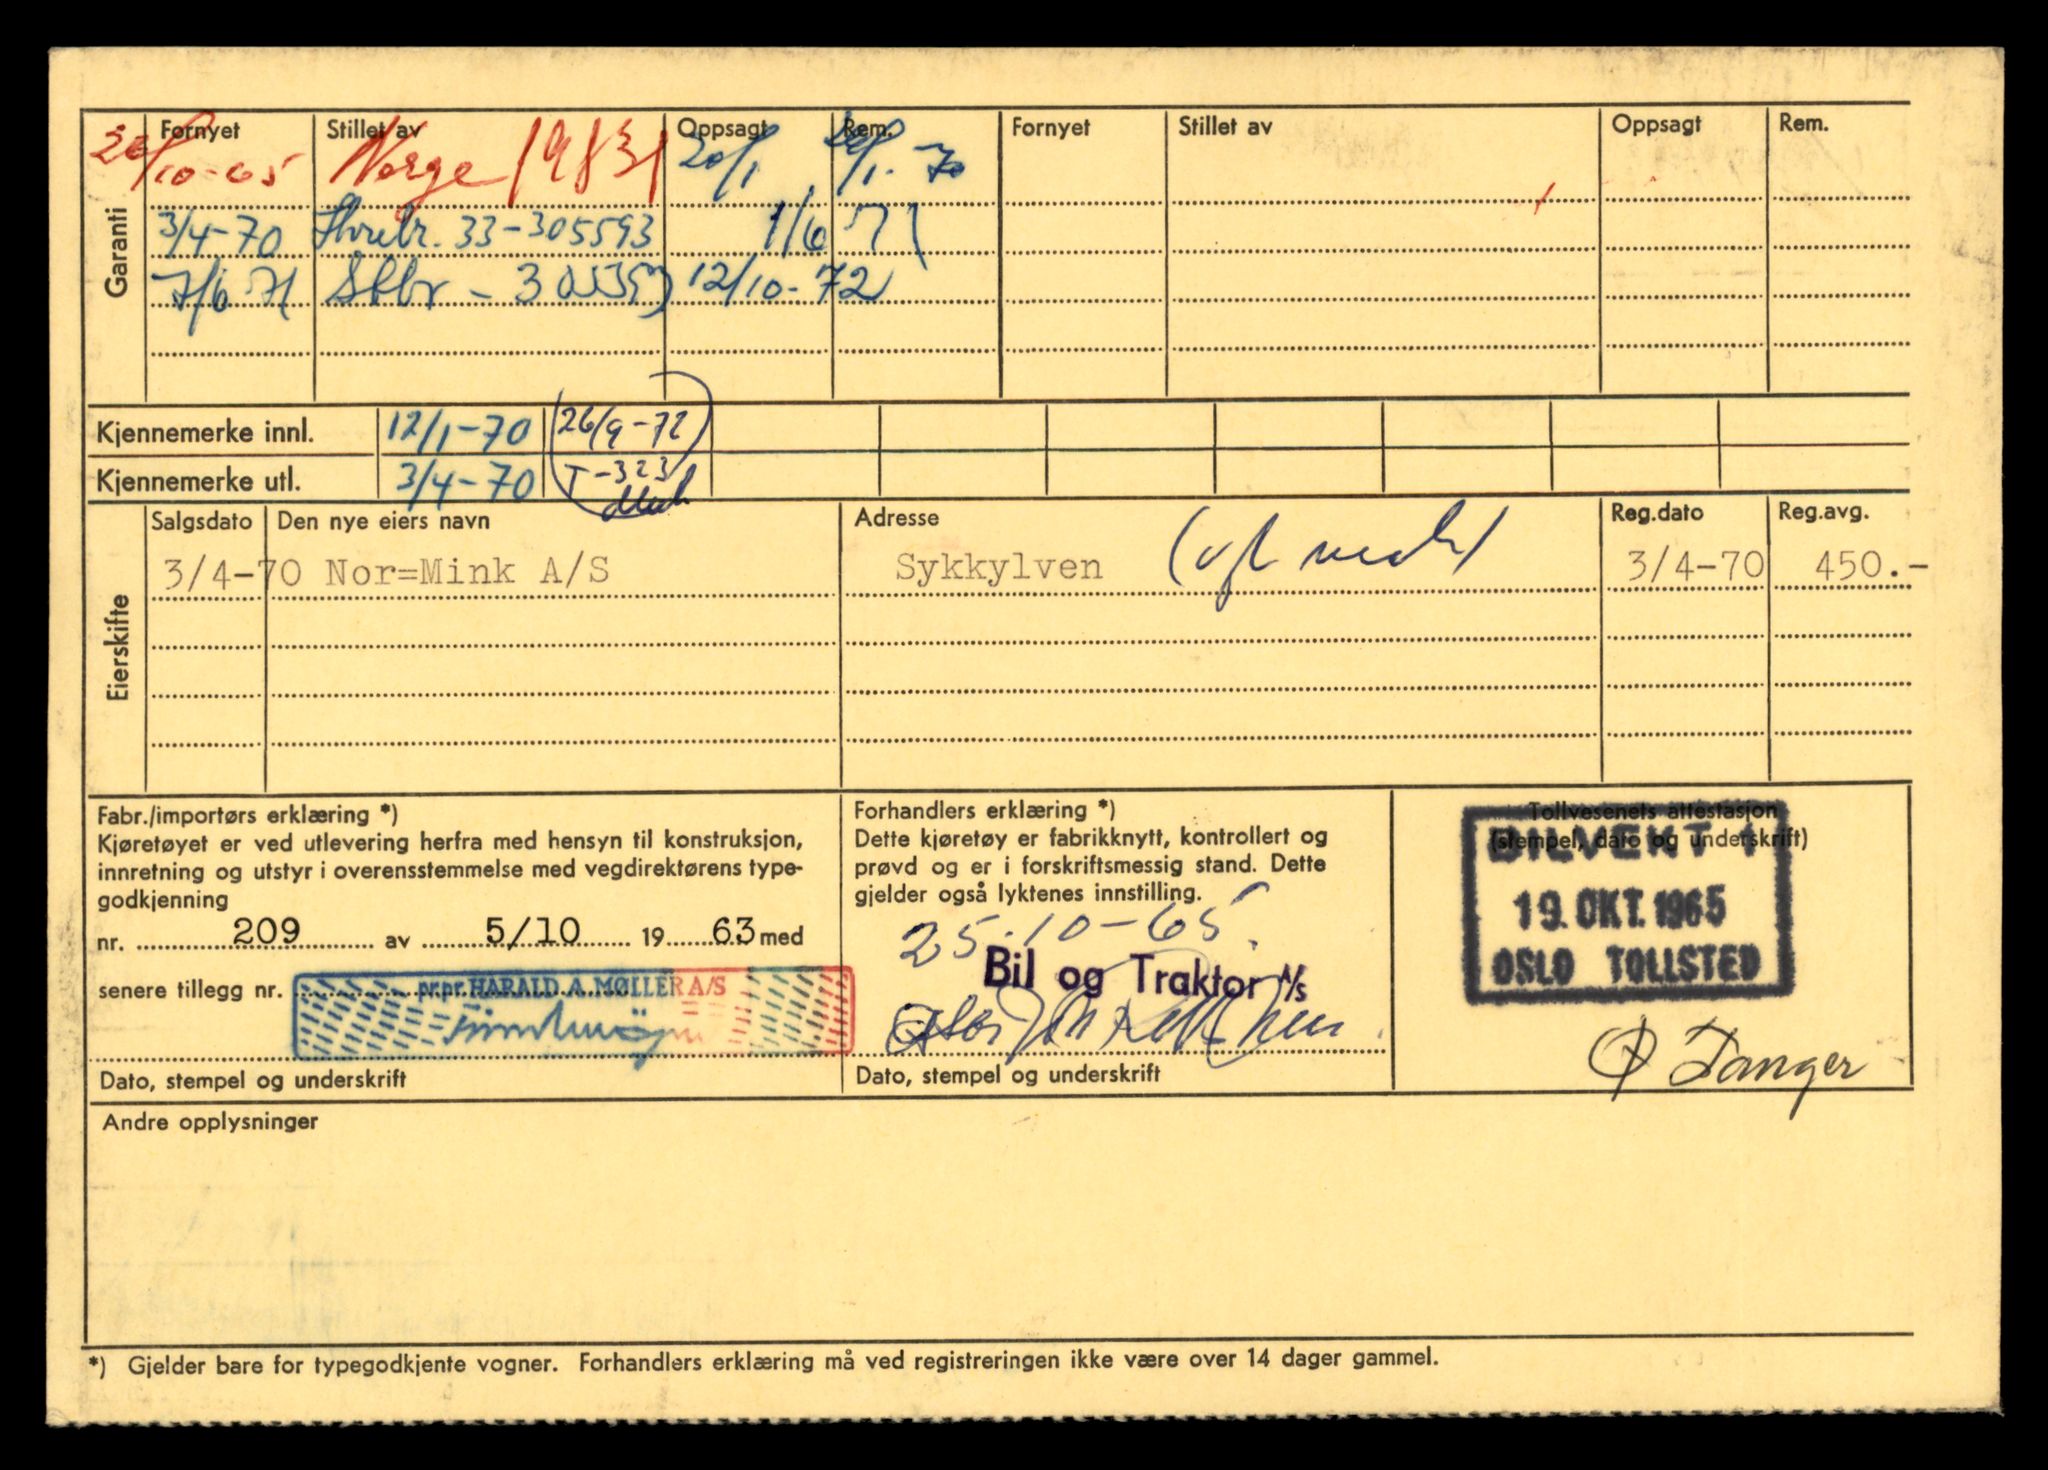 Fornyet Stillet av Oppsagt Rem. Fornyet Stillet av Oppsagt Rem.
/10-65 Norge 19831 20/1 20/1-70
3/4-70 33-305593 1/6 71
7/6 71 12/10-72
Garanti
Kjennemerke innl. 12/1-70 (26/9-72)
Kjennemerke utl. 3/4-70 T-323
Salgsdato Den nye eiers navn Adresse Reg.dato Reg.avg.
3/4-70 Nor=Mink A/S Sykkylven 3/4-70 450.-
Eierskifte
Fabr./importørs erklæring *)
Kjøretøyet er ved utlevering herfra med hensyn til konstruksjon,
innretning og utstyr i overensstemmelse med vegdirektørens type-
godkjenning
nr. 209 av 5/10 1963 med
senere tillegg nr.
pr.pr. HARALD A. MØLLER A/S
Dato, stempel og underskrift
Forhandlers erklæring *)
Dette kjøretøy er fabrikknytt, kontrollert og
prøvd og er i forskriftsmessig stand. Dette
gjelder også lyktenes innstilling.
25.10-65.
Bil og Traktor A/s
Dato, stempel og underskrift
Tollvesenets attestasjon
(stempel, dato og underskrift)
BILVEKT 1
19. OKT. 1965
OSLO TOLLSTED
Andre opplysninger
*) Gjelder bare for typegodkjente vogner. Forhandlers erklæring må ved registreringen ikke være over 14 dager gammel.